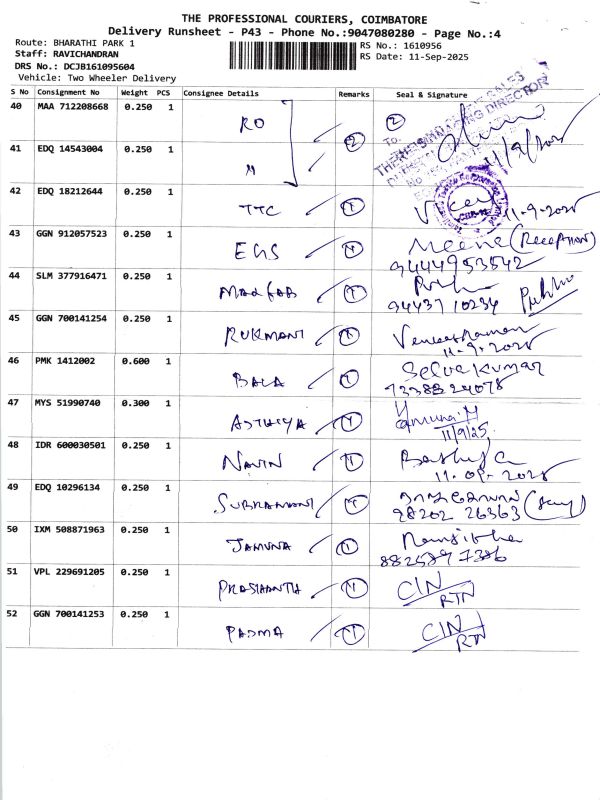 THE PROFESSIONAL COURIERS, COIMBATORE
Delivery Runsheet - P43 - Phone No.:9047080280 - Page No.:4
Route: BHARATHI PARK 1
Staff: RAVICHANDRAN
DRS No.: DCJB161095604
Vehicle: Two Wheeler Delivery
RS No.: 1610956
RS Date: 11-Sep-2025
S No Consignment No Weight PCS Consignee Details Remarks Seal & Signature
40 MAA 712208668 0.250 1 RO 2 2
11/9/2025
41 EDQ 14543004 0.250 1
42 EDQ 18212644 0.250 1 TTC 1 11-9-2025
43 GGN 912057523 0.250 1 EGS 1 Meena (Reception)
9444953542
44 SLM 377916471 0.250 1 1
9443710234
45 GGN 700141254 0.250 1 RUKMANI 1 Venkatraman
11-9-2025
46 PMK 1412002 0.600 1 BALA 1 Selva Kumar
7338824078
47 MYS 51990740 0.300 1 1 Yamuna.M
11/9/25
48 IDR 600030501 0.250 1 NAVIN 1
11-09-2025
49 EDQ 10296134 0.250 1 SUBRAMANI 1
98202 26363
50 IXM 508871963 0.250 1 JAMUNA 1
51 VPL 229691205 0.250 1 PRASHANTH 1 CIN/
RTN
52 GGN 700141253 0.250 1 PADMA 1 CIN/
RTN